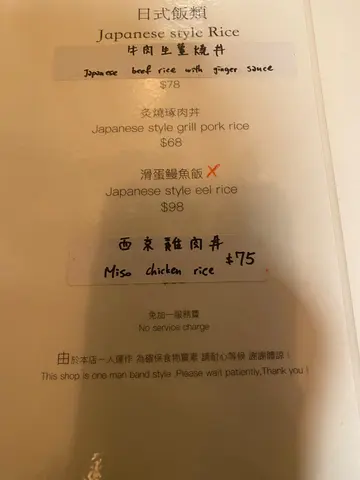 日式飯類
Japanese style Rice
牛肉生薑燒丼
Japanese beef rice with ginger sauce
$78
炙燒琢肉丼
Japanese style grill pork rice
$68
滑蛋鰻魚飯 X
Japanese style eel rice
$98
西京雞肉丼 $75
Miso chicken rice
免加一服務費
No service charge
由於本店一人運作 為確保食物質素 請耐心等候 謝謝體諒！
This shop is one man band style .Please wait patiently,Thank you !